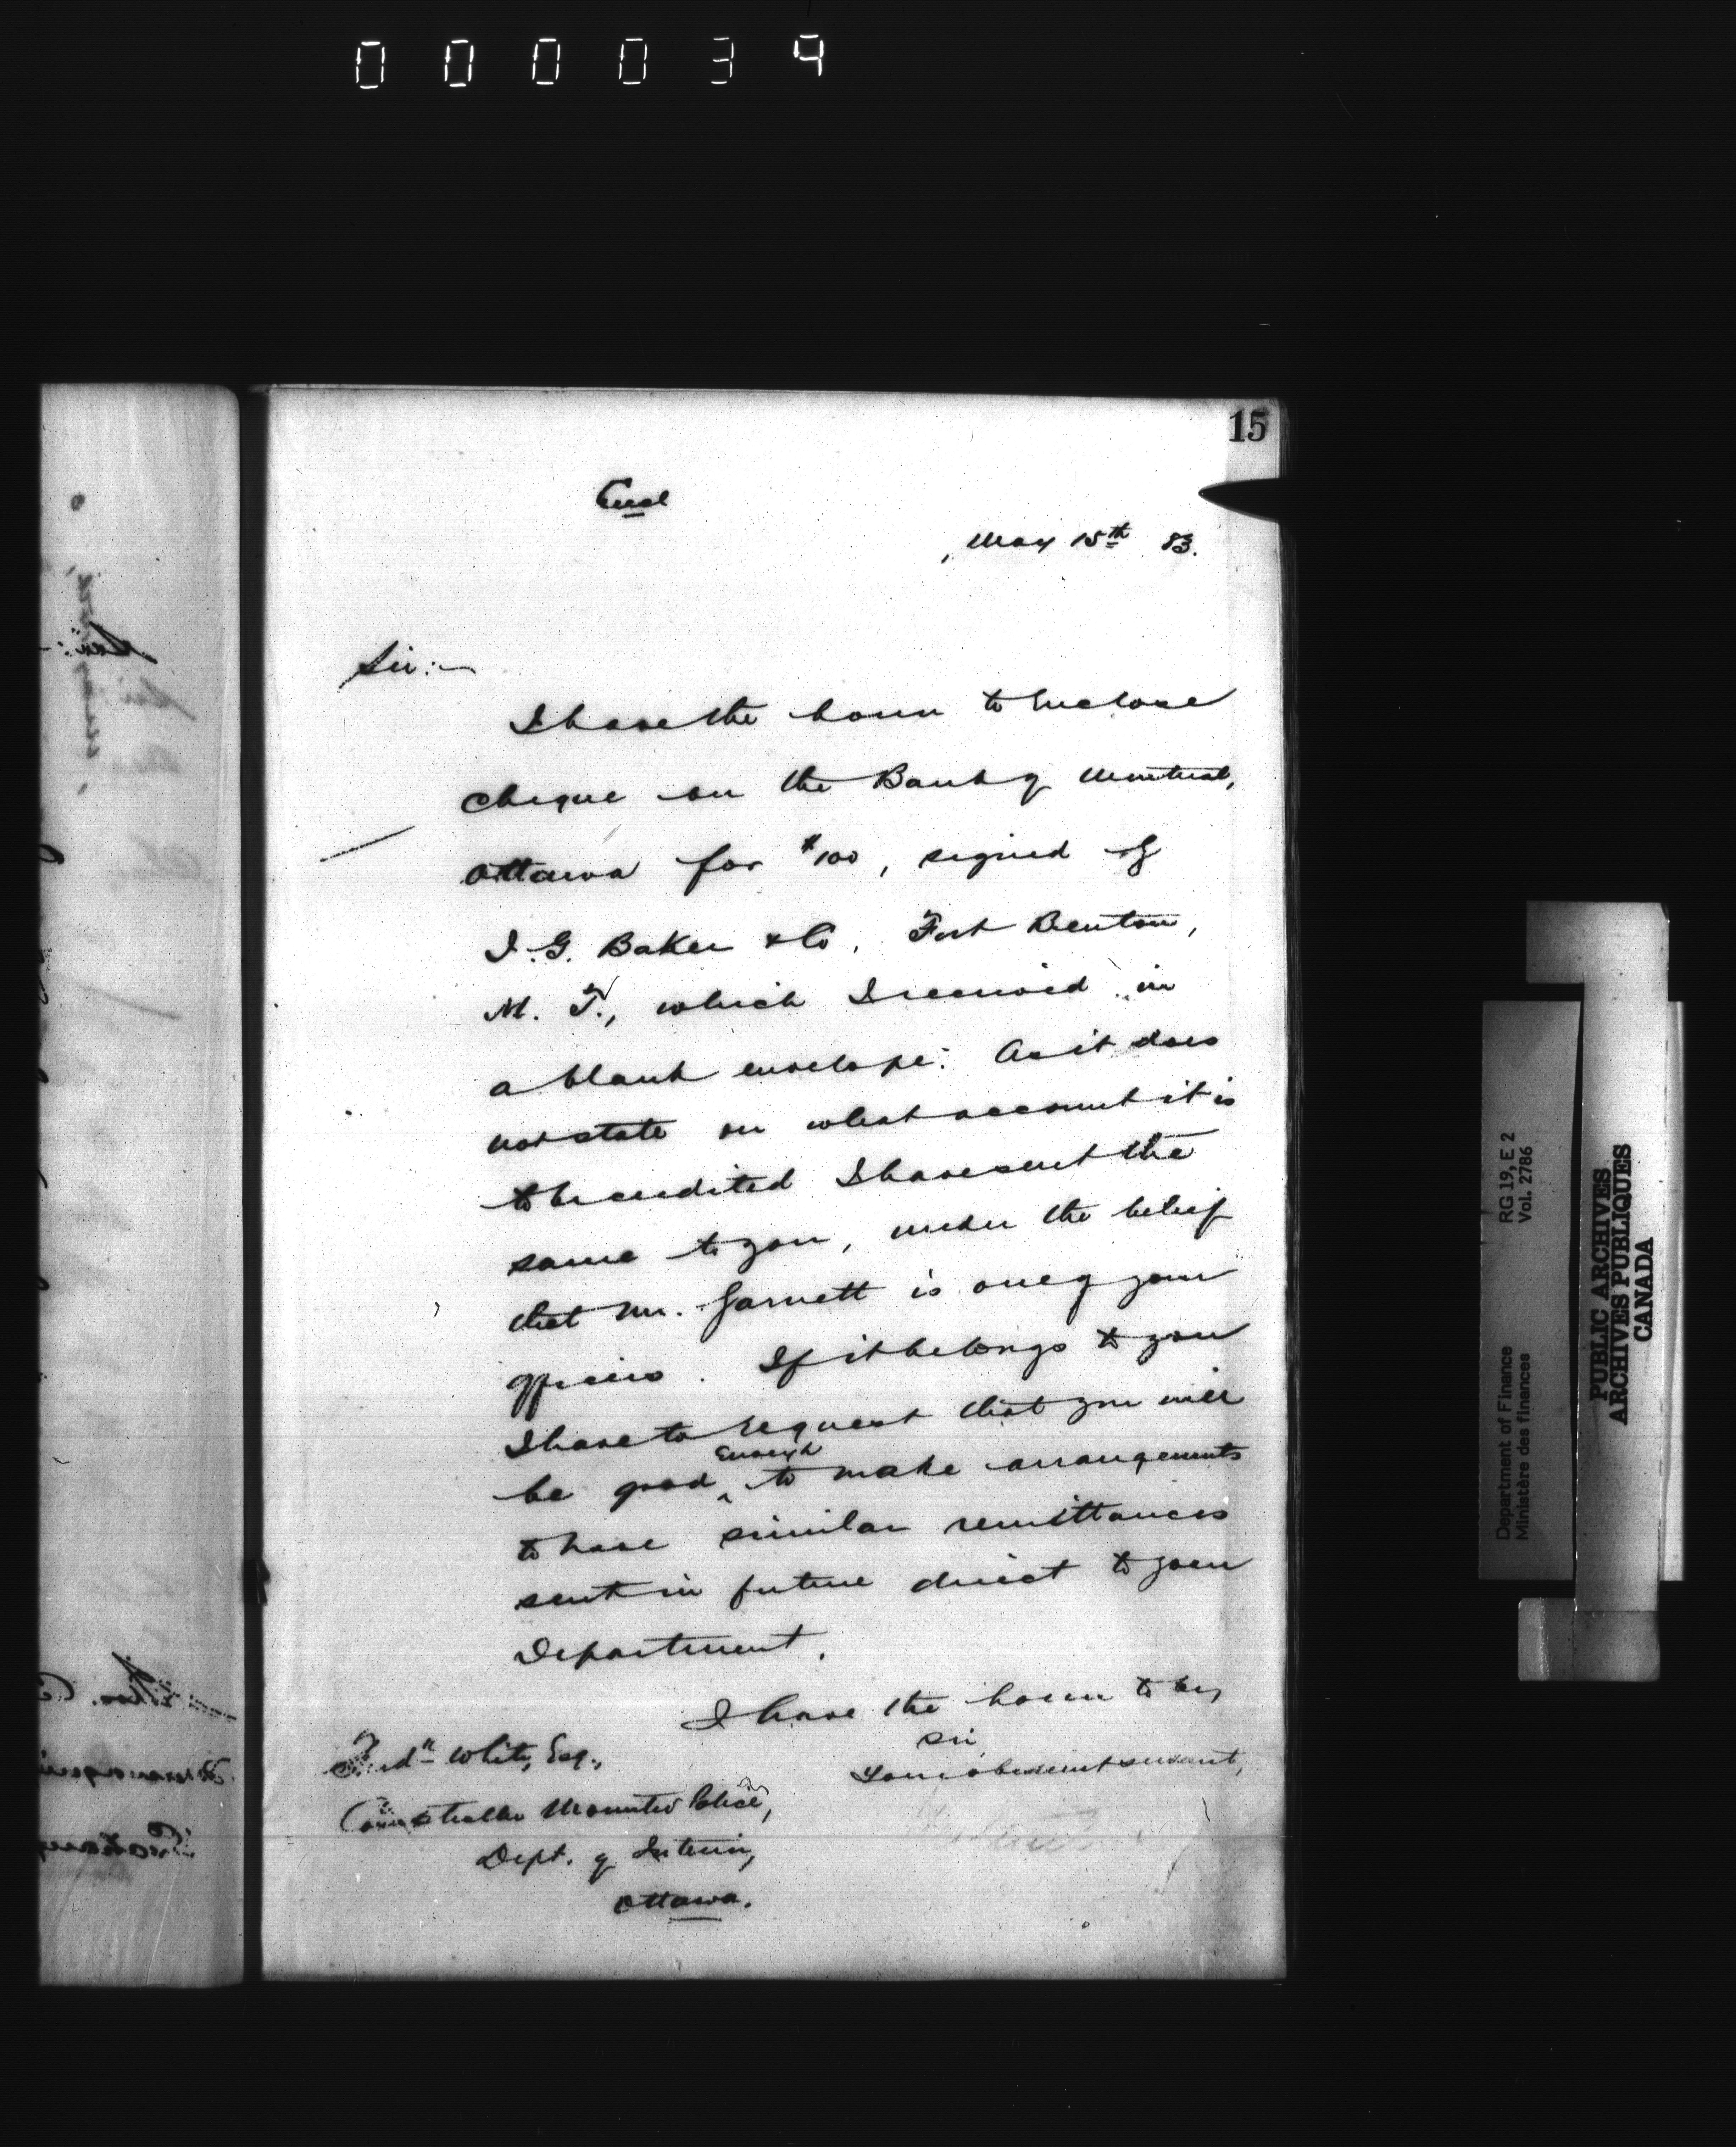 000034
15
Encl
May 15th 83.
Sir:—
I have the honor to enclose
cheque on the Bank of Montreal,
Ottawa for $100, signed by
I. G. Baker & Co, Fort Benton,
M. T., which I received in
a blank envelope. As it does
not state on what account it is
to be credited I have sent the
same to you, under the belief
that Mr. Garnett is one of your
officers. If it belongs to you
I have to request that you will
be good enough to make arrangements
to have similar remittances
sent in future direct to your
Department.
I have the honor to be,
Sir,
Your obedient servant,
Fredk White, Esq.,
Comptroller Mounted Police,
Dept. of Interior,
Ottawa.
Department of Finance RG 19, E 2
Ministère des finances Vol. 2786
PUBLIC ARCHIVES
ARCHIVES PUBLIQUES
CANADA